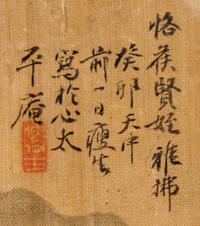 恪葊賢姪雅拂
癸卯天中
前一日瘦生
寫於心太
平庵